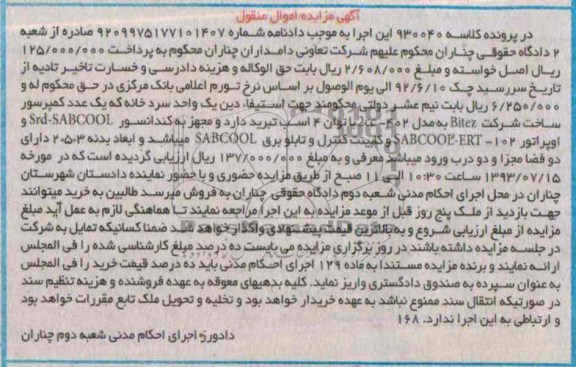 آگهی مزایده اموال منقول
در پرونده کلاسه ۹۳۰۰۴۰ این اجرا به موجب دادنامه شماره ۹۲۰۹۹۷۵۱۷۷۱۰۱۴۰۷ صادره از شعبه
۲ دادگاه حقوقی چناران محکوم علیهم شرکت تعاونی دامداران چناران محکوم به پرداخت ۱۲۵/۰۰۰/۰۰۰
ریال اصل خواسته و مبلغ ۲/۶۰۸/۰۰۰ ریال بابت حق الوکاله و هزینه دادرسی و خسارت تاخیر تادیه از
تاریخ سررسید چک ۹۲/۶/۱۰ الی یوم الوصول بر اساس نرخ تورم اعلامی بانک مرکزی در حق محکوم له و
۶/۲۵۰/۰۰۰ ریال بابت نیم عشر دولتی محکومند جهت استیفاء دین یک واحد سرد خانه که یک عدد کمپرسور
ساخت شرکت Bitez به مدل ۴۰۲-ت با توان ۴ اسب تبرید دارد و مجهز به کندانسور Srd-SABCOOL و
اوپراتور SABCOOL-ERT -۱۰۲ و کابینت کنترل و تابلو برق SABCOOL میباشد و ابعاد بدنه ۳-۵-۲ دارای
دو فضا مجزا و دو درب ورود میباشد معرفی و به مبلغ ۱۳۷/۰۰۰/۰۰۰ ریال ارزیابی گردیده است که در مورخه
۱۳۹۳/۰۷/۱۵ ساعت ۱۰:۳۰ الی ۱۱ صبح از طریق مزایده حضوری و با حضور نماینده دادستان شهرستان
چناران در محل اجرای احکام مدنی شعبه دوم دادگاه حقوقی چناران به فروش میرسد طالبین به خرید میتوانند
جهت بازدید از ملک پنج روز قبل از موعد مزایده به این اجرا مراجعه نمایند تا هماهنگی لازم به عمل آید مبلغ
مزایده از مبلغ ارزیابی شروع و به بالاترین قیمت پیشنهادی واگذار خواهد شد ضمنا کسانیکه تمایل به شرکت
در جلسه مزایده داشته باشند در روز برگزاری مزایده می بایست ده درصد مبلغ کارشناسی شده را فی المجلس
ارائه نمایند و برنده مزایده مستندا به ماده ۱۲۹ اجرای احکام مدنی باید ده درصد قیمت خرید را فی المجلس
به عنوان سپرده به صندوق دادگستری واریز نماید. کلیه بدهیهای معوقه به عهده فروشنده و هزینه تنظیم سند
در صورتیکه انتقال سند ممنوع نباشد به عهده خریدار خواهد بود و تخلیه و تحویل ملک تابع مقررات خواهد بود
و ارتباطی به این اجرا ندارد. ۱۶۸
دادورز اجرای احکام مدنی شعبه دوم چناران